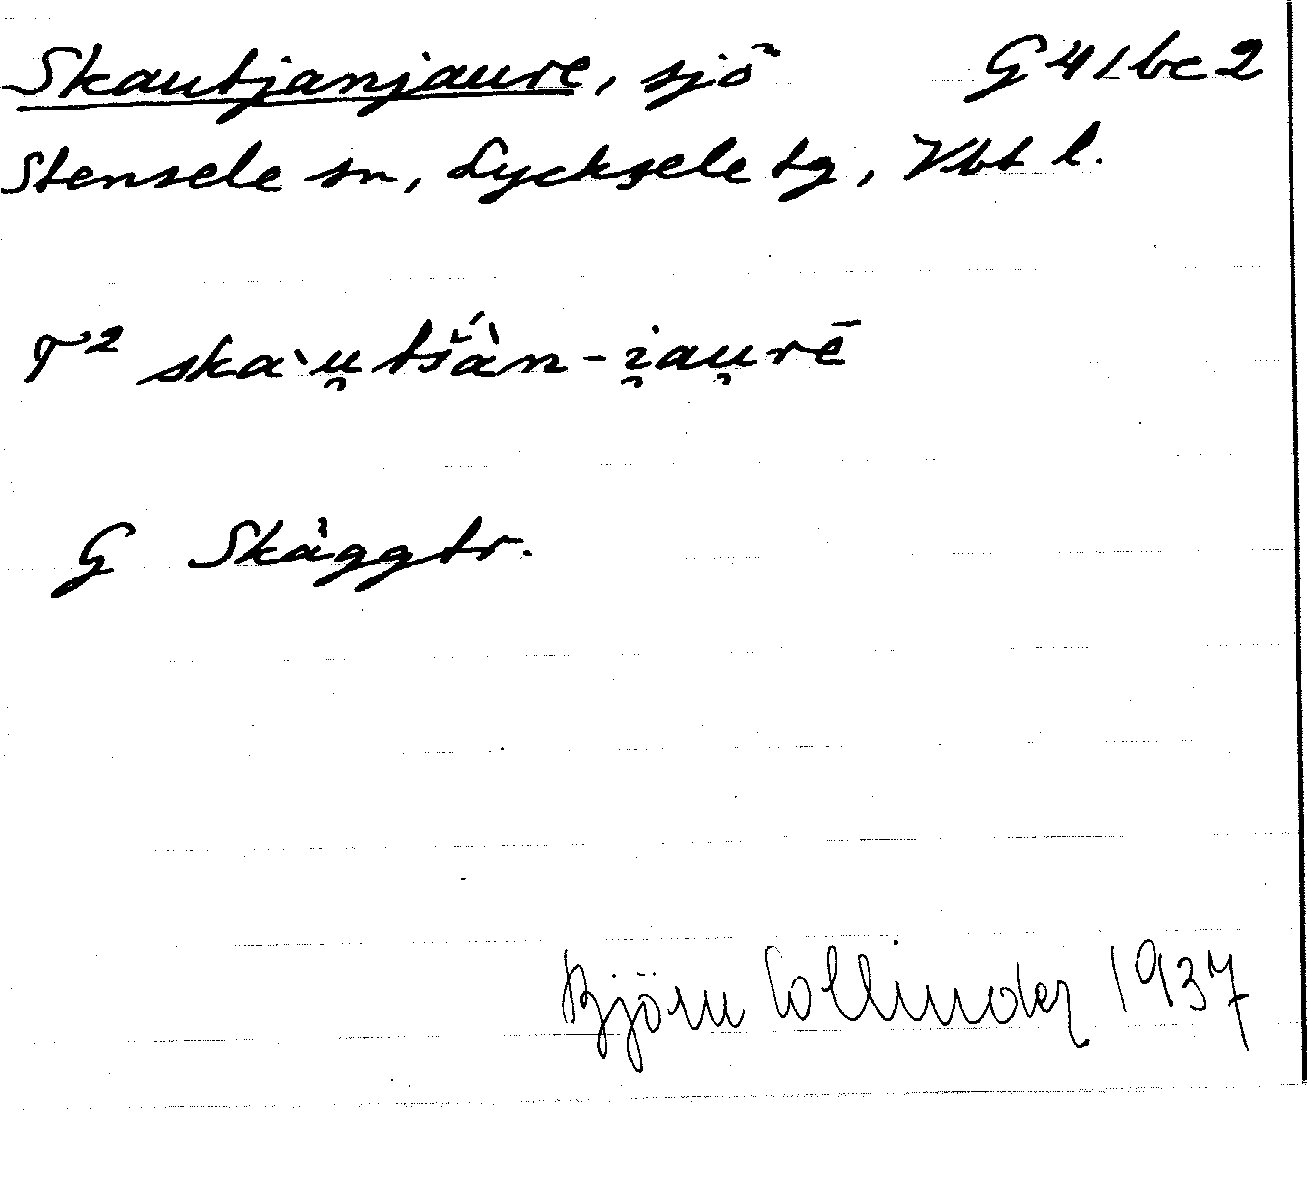 Skautjanjaure, sjö G 41 bc 2
Stensele sn, Lycksele tg, Vbt l.
T² ska`u̯tš́àn-i̯au̯rē
G Skäggtr.
Björn Collinder 1937